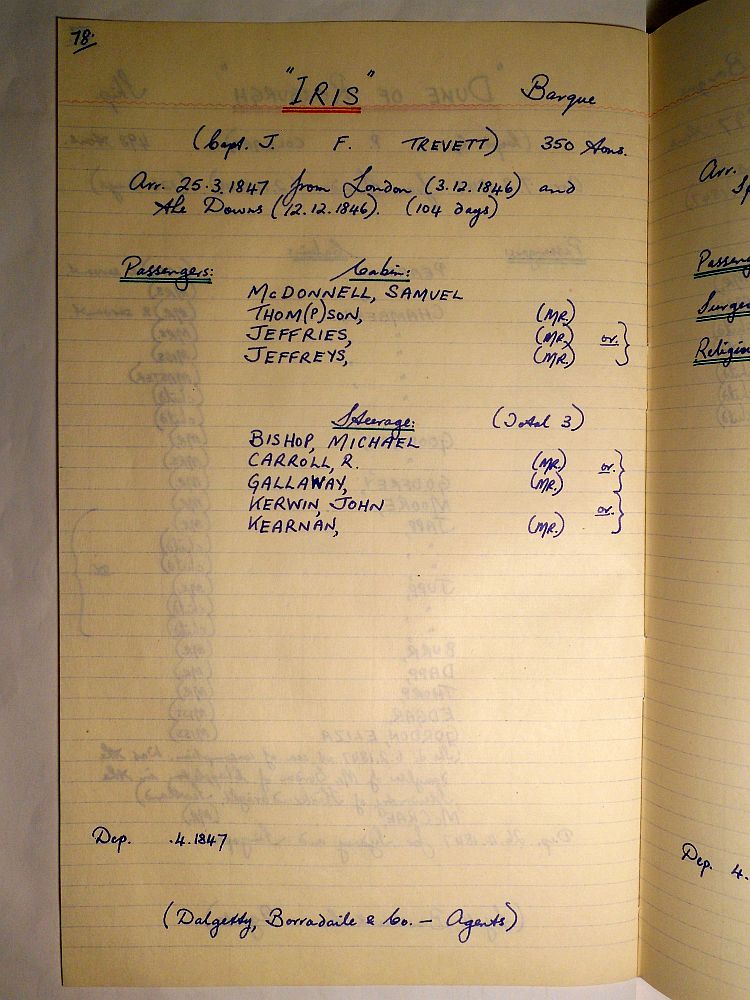 78.
"IRIS" Barque
(Capt. J. F. TREVETT) 350 tons.
Arr. 25.3.1847 from London (3.12.1846) and
the Downs (12.12.1846). (104 days)
Passengers: Cabin:
McDONNELL, SAMUEL
THOM(P)SON, (MR.)
JEFFRIES, (MR.) or.
JEFFREYS, (MR.)
Steerage: (Total 3)
BISHOP, MICHAEL
CARROLL, R. (MR.) or.
GALLAWAY, (MR.)
KERWIN, JOHN or.
KEARNAN, (MR.)
Dep. .4.1847
(Dalgetty, Borradaile & Co. — Agents)
Arr.
Dep. 4.